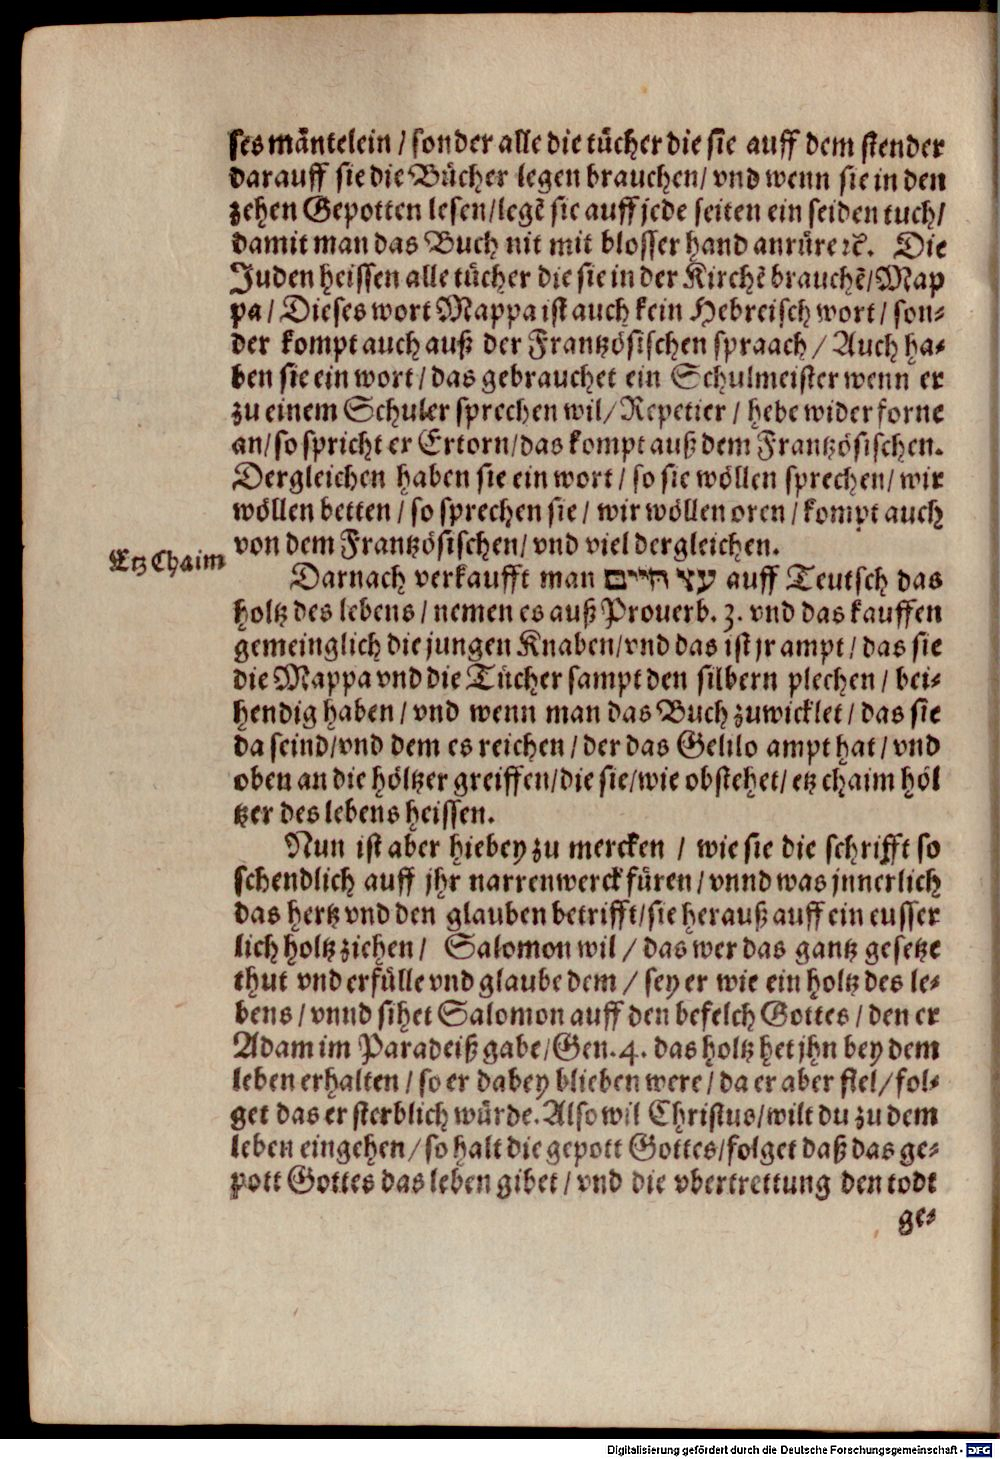 ses mäntelein / sonder alle die tücher die sie auff dem stender
darauff sie die Bücher legen brauchen / vnd wenn sie in den
zehen Gepotten lesen / legẽ sie auff jede seiten ein seiden tuch /
damit man das Buch nit mit blosser hand anrüre ꝛc. Die
Juden heissen alle tücher die sie in der Kirchẽ brauchẽ / Map
pa / Dieses wort Mappa ist auch kein Hebreisch wort / son-
der kompt auch auß der Frantzösischen spraach / Auch ha-
ben sie ein wort / das gebrauchet ein Schulmeister wenn er
zu einem Schuler sprechen wil / Repetier / hebe wider forne
an / so spricht er Ertorn / das kompt auß dem Frantzösischen.
Dergleichen haben sie ein wort / so sie wöllen sprechen / wir
wöllen betten / so sprechen sie / wir wöllen oren / kompt auch
von dem Frantzösischen / vnd viel dergleichen.
Etz Chaim
Darnach verkaufft man עץ חיים auff Teutsch das
holtz des lebens / nemen es auß Prouerb. 3. vnd das kauffen
gemeinglich die jungen Knaben / vnd das ist jr ampt / das sie
die Mappa vnd die Tücher sampt den silbern plechen / bei-
hendig haben / vnd wenn man das Buch zuwicklet / das sie
da seind / vnd dem es reichen / der das Gelilo ampt hat / vnd
oben an die höltzer greiffen / die sie / wie obstehet / etz chaim höl
tzer des lebens heissen.
Nun ist aber hiebey zu mercken / wie sie die schrifft so
schendlich auff jhr narrenwerck füren / vnnd was jnnerlich
das hertz vnd den glauben betrifft / sie herauß auff ein eusser
lich holtz ziehen / Salomon wil / das wer das gantz gesetze
thut vnd erfülle vnd glaube dem / sey er wie ein holtz des le-
bens / vnnd sihet Salomon auff den befelch Gottes / den er
Adam im Paradeiß gabe / Gen. 4. das holtz het jhn bey dem
leben erhalten / so er dabey blieben were / da er aber fiel / fol-
get das er sterblich würde. Also wil Christus / wilt du zu dem
leben eingehen / so halt die gepott Gottes / folget daß das ge-
pott Gottes das leben gibet / vnd die vbertrettung den todt
ge-
Digitalisierung gefördert durch die Deutsche Forschungsgemeinschaft - DFG